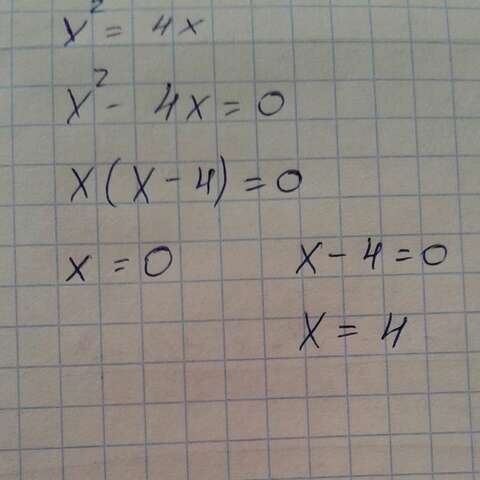 x² = 4x
x² - 4x = 0
x(x - 4) = 0
x = 0 x - 4 = 0
x = 4